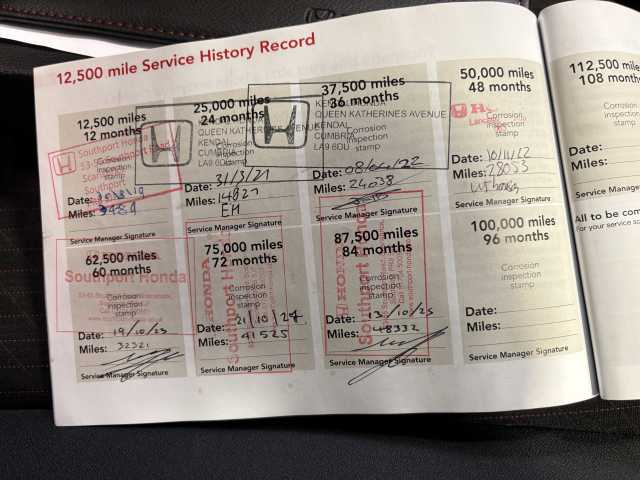 12,500 mile Service History Record
12,500 miles
12 months
Southport Honda
Corrosion
inspection
stamp
Southport
Date:
Miles:
Service Manager Signature
25,000 miles
24 months
QUEEN KATHERINES AVENUE
KENDAL
CUMBRIA
LA9 6DU
stamp
Date: 31/3/21
Miles: 14927
EH
Service Manager Signature
37,500 miles
36 months
KENDAL HONDA
QUEEN KATHERINES AVENUE
KENDAL
CUMBRIA
LA9 6DU
Corrosion
inspection
stamp
Date: 08/04/22
Miles: 24038
Service Manager Signature
50,000 miles
48 months
Corrosion
inspection
stamp
Date: 10/11/22
Miles: 28055
Service Manager Signature
62,500 miles
60 months
Southport Honda
Corrosion
inspection
stamp
Date: 19/10/23
Miles: 32321
Service Manager Signature
75,000 miles
72 months
HONDA
Southport
Corrosion
inspection
stamp
Date: 21/10/24
Miles: 41525
Service Manager Signature
87,500 miles
84 months
HONDA
Southport
Corrosion
inspection
stamp
Date: 13/10/25
Miles: 48332
Service Manager Signature
100,000 miles
96 months
Corrosion
inspection
stamp
Date:
Miles:
Service Manager Signature
112,500 mile
108 month
Corrosion
inspection
stamp
Date:
Miles:
Service Manager
All to be con
For your service sc